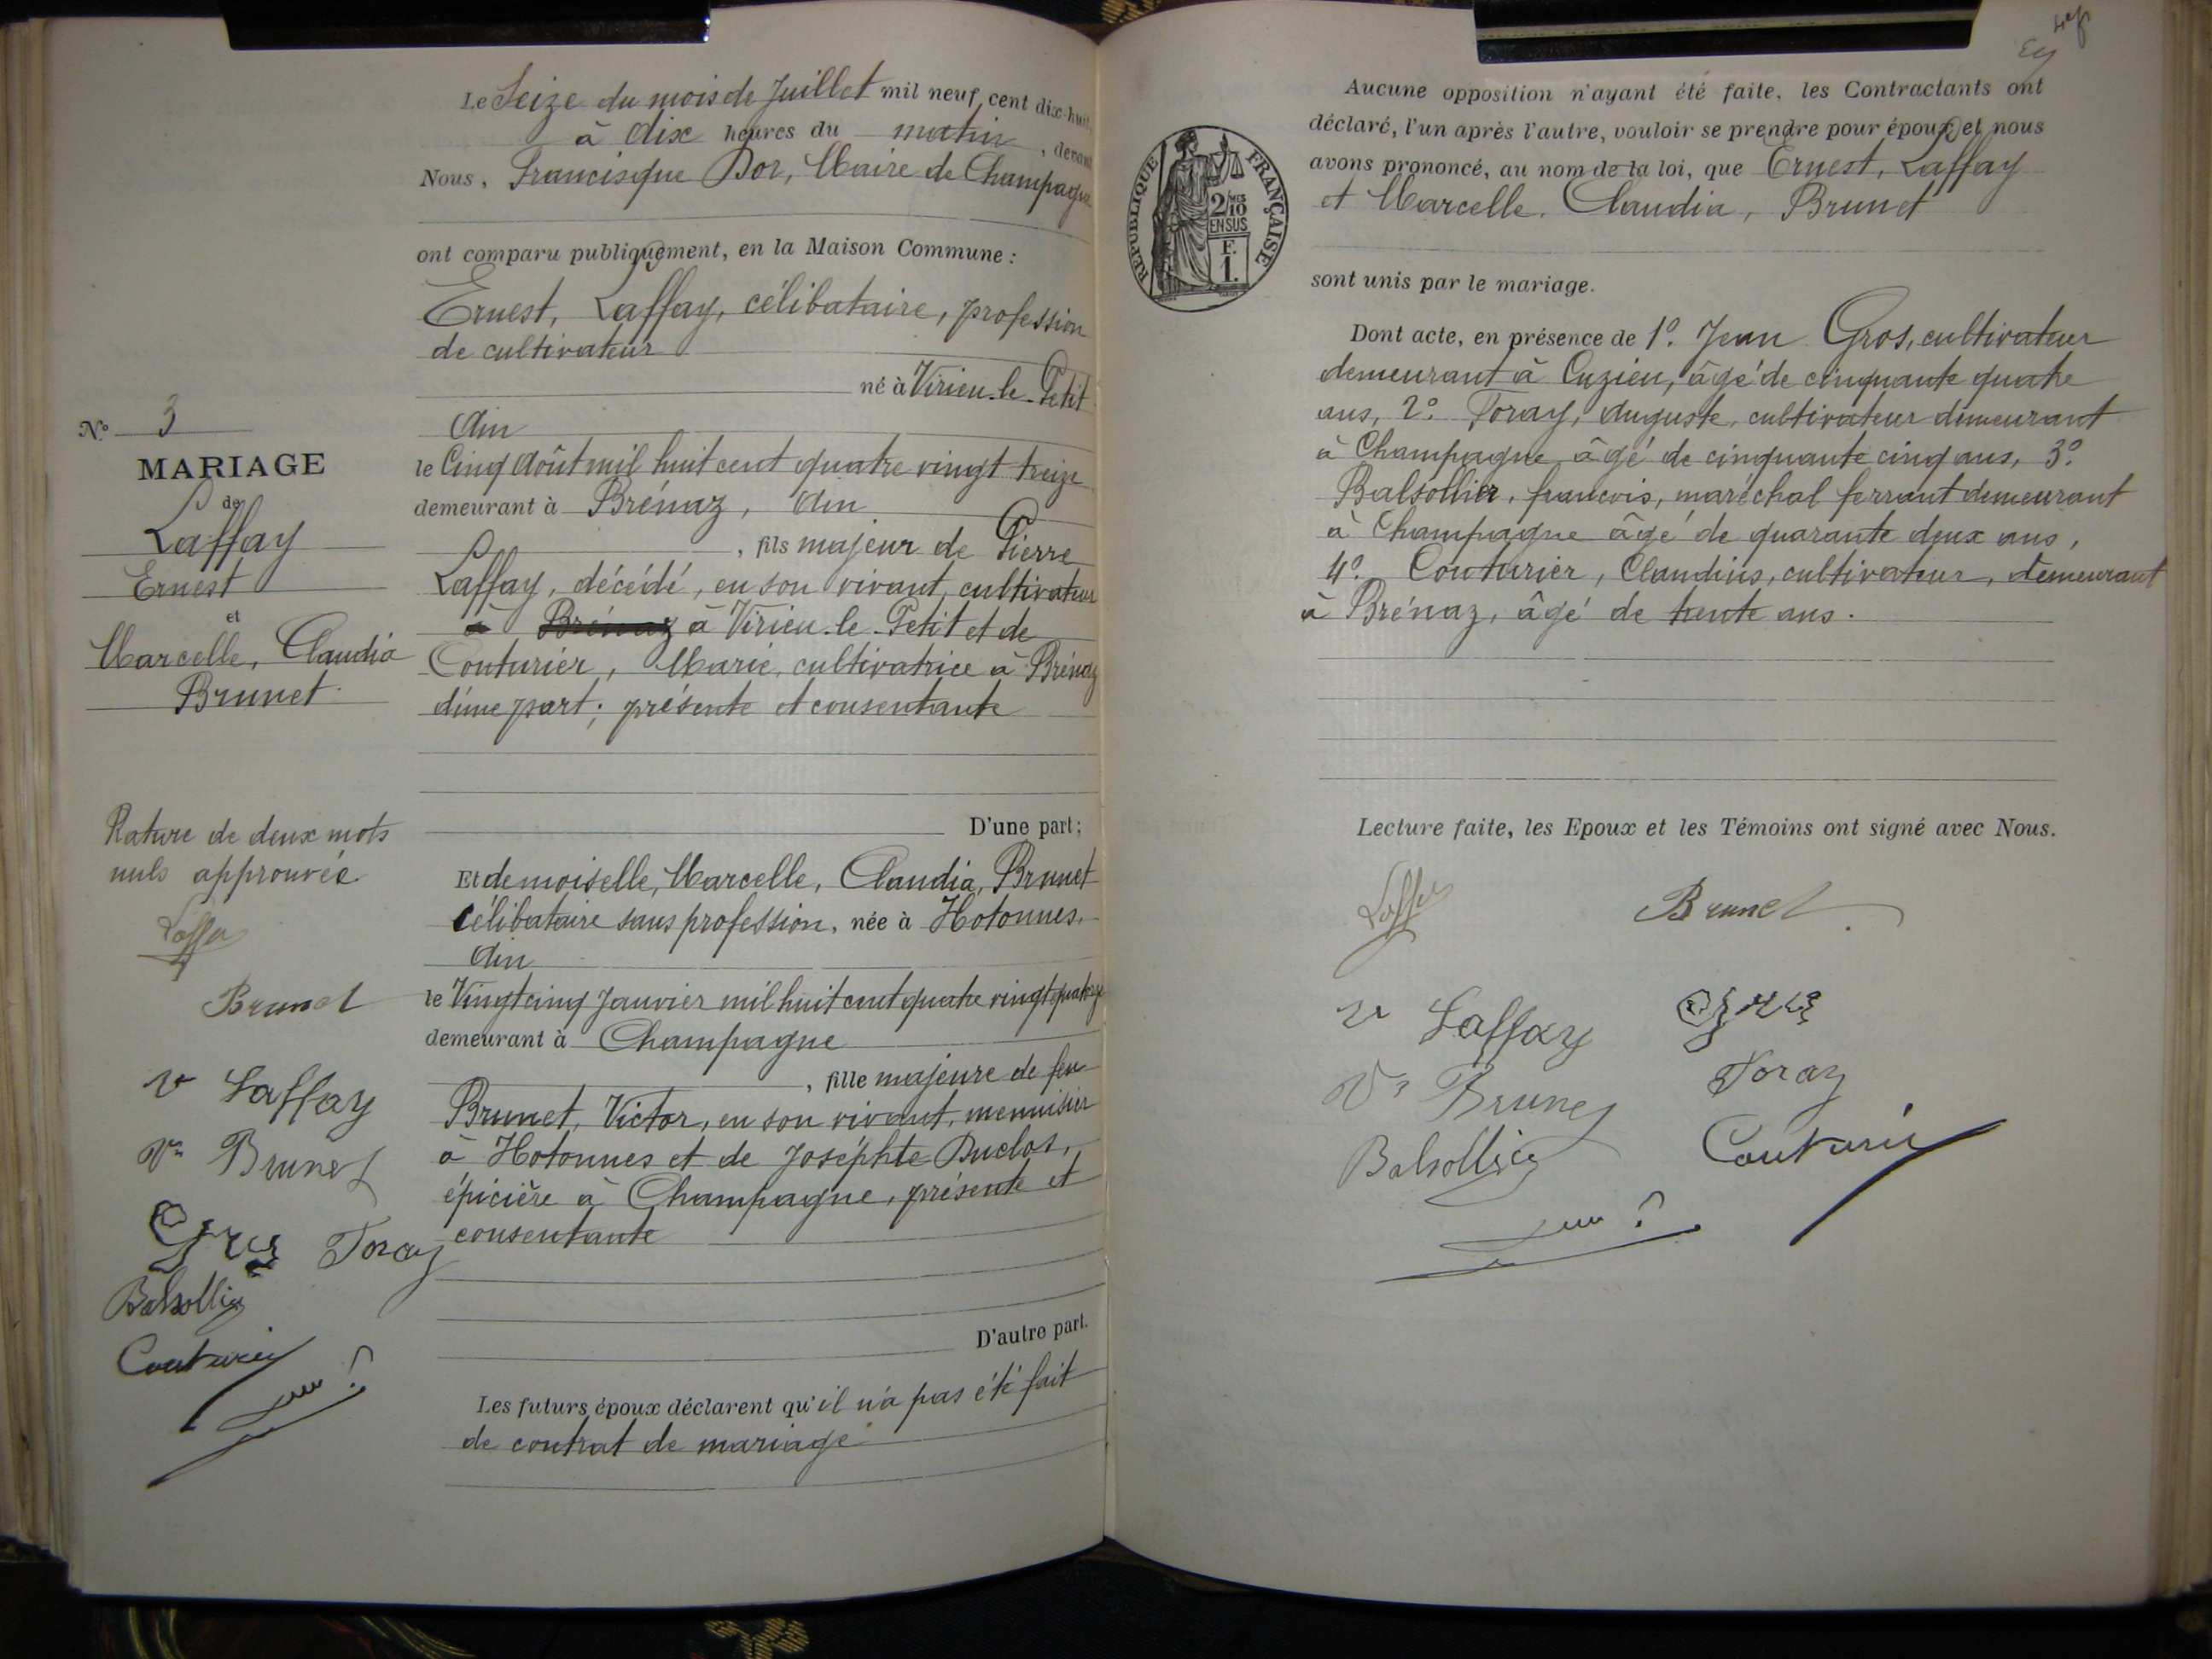 Le Seize du mois de Juillet mil neuf cent dix-huit
à dix heures du matin, devant
Nous, Francisque Dor, Maire de Champagne
ont comparu publiquement, en la Maison Commune :
Ernest, Laffay, célibataire, profession
de cultivateur
né à Virieu-le-Petit
Ain
le Cinq Août mil huit cent quatre vingt treize
demeurant à Brénaz, Ain
, fils majeur de Pierre
Laffay, décédé, en son vivant, cultivateur
à Brénaz à Virieu-le-Petit et de
Couturier, Marie, cultivatrice à Brénaz
d'une part ; présente et consentante
D'une part ;
Et demoiselle, Marcelle, Claudia, Brunet
célibataire sans profession, née à Hotonnes,
Ain
le Vingt cinq Janvier mil huit cent quatre vingt quatorze
demeurant à Champagne
, fille majeure de feu
Brunet, Victor, en son vivant, menuisier
à Hotonnes et de Joséphte Duclos,
épicière à Champagne, présente et
consentante
D'autre part.
Les futurs époux déclarent qu'il n'a pas été fait
de contrat de mariage
N° 3
MARIAGE
de
Laffay
Ernest
et
Marcelle, Claudia
Brunet
Rature de deux mots
nuls approuvée
Laffay
Brunet
Ve Laffay
Ve Brunet
Gros Foray
Balsollier
Couturier
Aucune opposition n'ayant été faite, les Contractants ont
déclaré, l'un après l'autre, vouloir se prendre pour époux, et nous
avons prononcé, au nom de la loi, que Ernest, Laffay
et Marcelle, Claudia, Brunet
sont unis par le mariage.
RÉPUBLIQUE FRANÇAISE
2/10MES
EN SUS
F.
1.
Dont acte, en présence de 1°. Jean Gros, cultivateur
demeurant à Cuzieu, âgé de cinquante quatre
ans, 2°. Foray, Auguste, cultivateur demeurant
à Champagne âgé de cinquante cinq ans, 3°.
Balsollier, françois, maréchal ferrant demeurant
à Champagne âgé de quarante deux ans,
4°. Couturier, Claudius, cultivateur, demeurant
à Brénaz, âgé de trente ans.
Lecture faite, les Epoux et les Témoins ont signé avec Nous.
Laffay Brunet
Ve Laffay Gros
Ve Brunet Foray
Balsollier Couturier